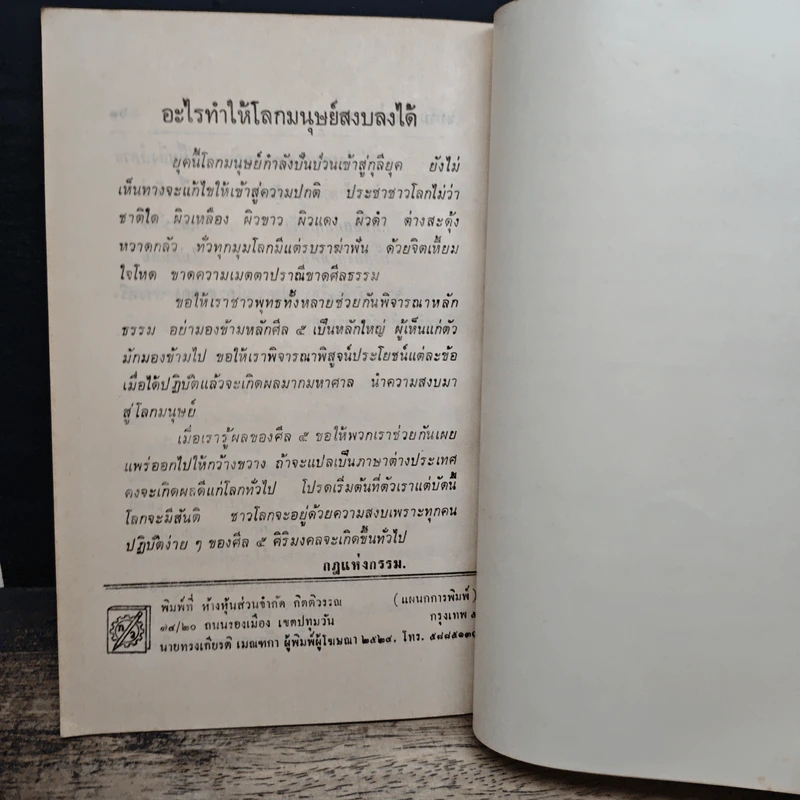 อะไรทำให้โลกมนุษย์สงบลงได้
ยุคนี้โลกมนุษย์กำลังปั่นป่วนเข้าสู่กุลียุค ยังไม่
เห็นทางจะแก้ไขให้เข้าสู่ความปกติ ประชาชาวโลกไม่ว่า
ชาติใด ผิวเหลือง ผิวขาว ผิวแดง ผิวดำ ต่างสะดุ้ง
หวาดกลัว ทั่วทุกมุมโลกมีแต่รบราฆ่าฟัน ด้วยจิตเหี้ยม
ใจโหด ขาดความเมตตาปราณีขาดศีลธรรม
ขอให้เราชาวพุทธทั้งหลายช่วยกันพิจารณาหลัก
ธรรม อย่ามองข้ามหลักศีล ๕ เป็นหลักใหญ่ ผู้เห็นแก่ตัว
มักมองข้ามไป ขอให้เราพิจารณาพิสูจน์ประโยชน์แต่ละข้อ
เมื่อได้ปฏิบัติแล้วจะเกิดผลมากมหาศาล นำความสงบมา
สู่โลกมนุษย์
เมื่อเรารู้ผลของศีล ๕ ขอให้พวกเราช่วยกันเผย
แพร่ออกไปให้กว้างขวาง ถ้าจะแปลเป็นภาษาต่างประเทศ
คงจะเกิดผลดีแก่โลกทั่วไป โปรดเริ่มต้นที่ตัวเราแต่บัดนี้
โลกจะมีสันติ ชาวโลกจะอยู่ด้วยความสงบเพราะทุกคน
ปฏิบัติง่าย ๆ ของศีล ๕ ศิริมงคลจะเกิดขึ้นทั่วไป
กฎแห่งกรรม.
พิมพ์ที่ ห้างหุ้นส่วนจำกัด กิตติวรรณ (แผนกการพิมพ์)
๑๙/๒๐ ถนนรองเมือง เขตปทุมวัน กรุงเทพ ๕
นายทรงเกียรติ เมณฑกา ผู้พิมพ์ผู้โฆษณา ๒๕๒๔. โทร.